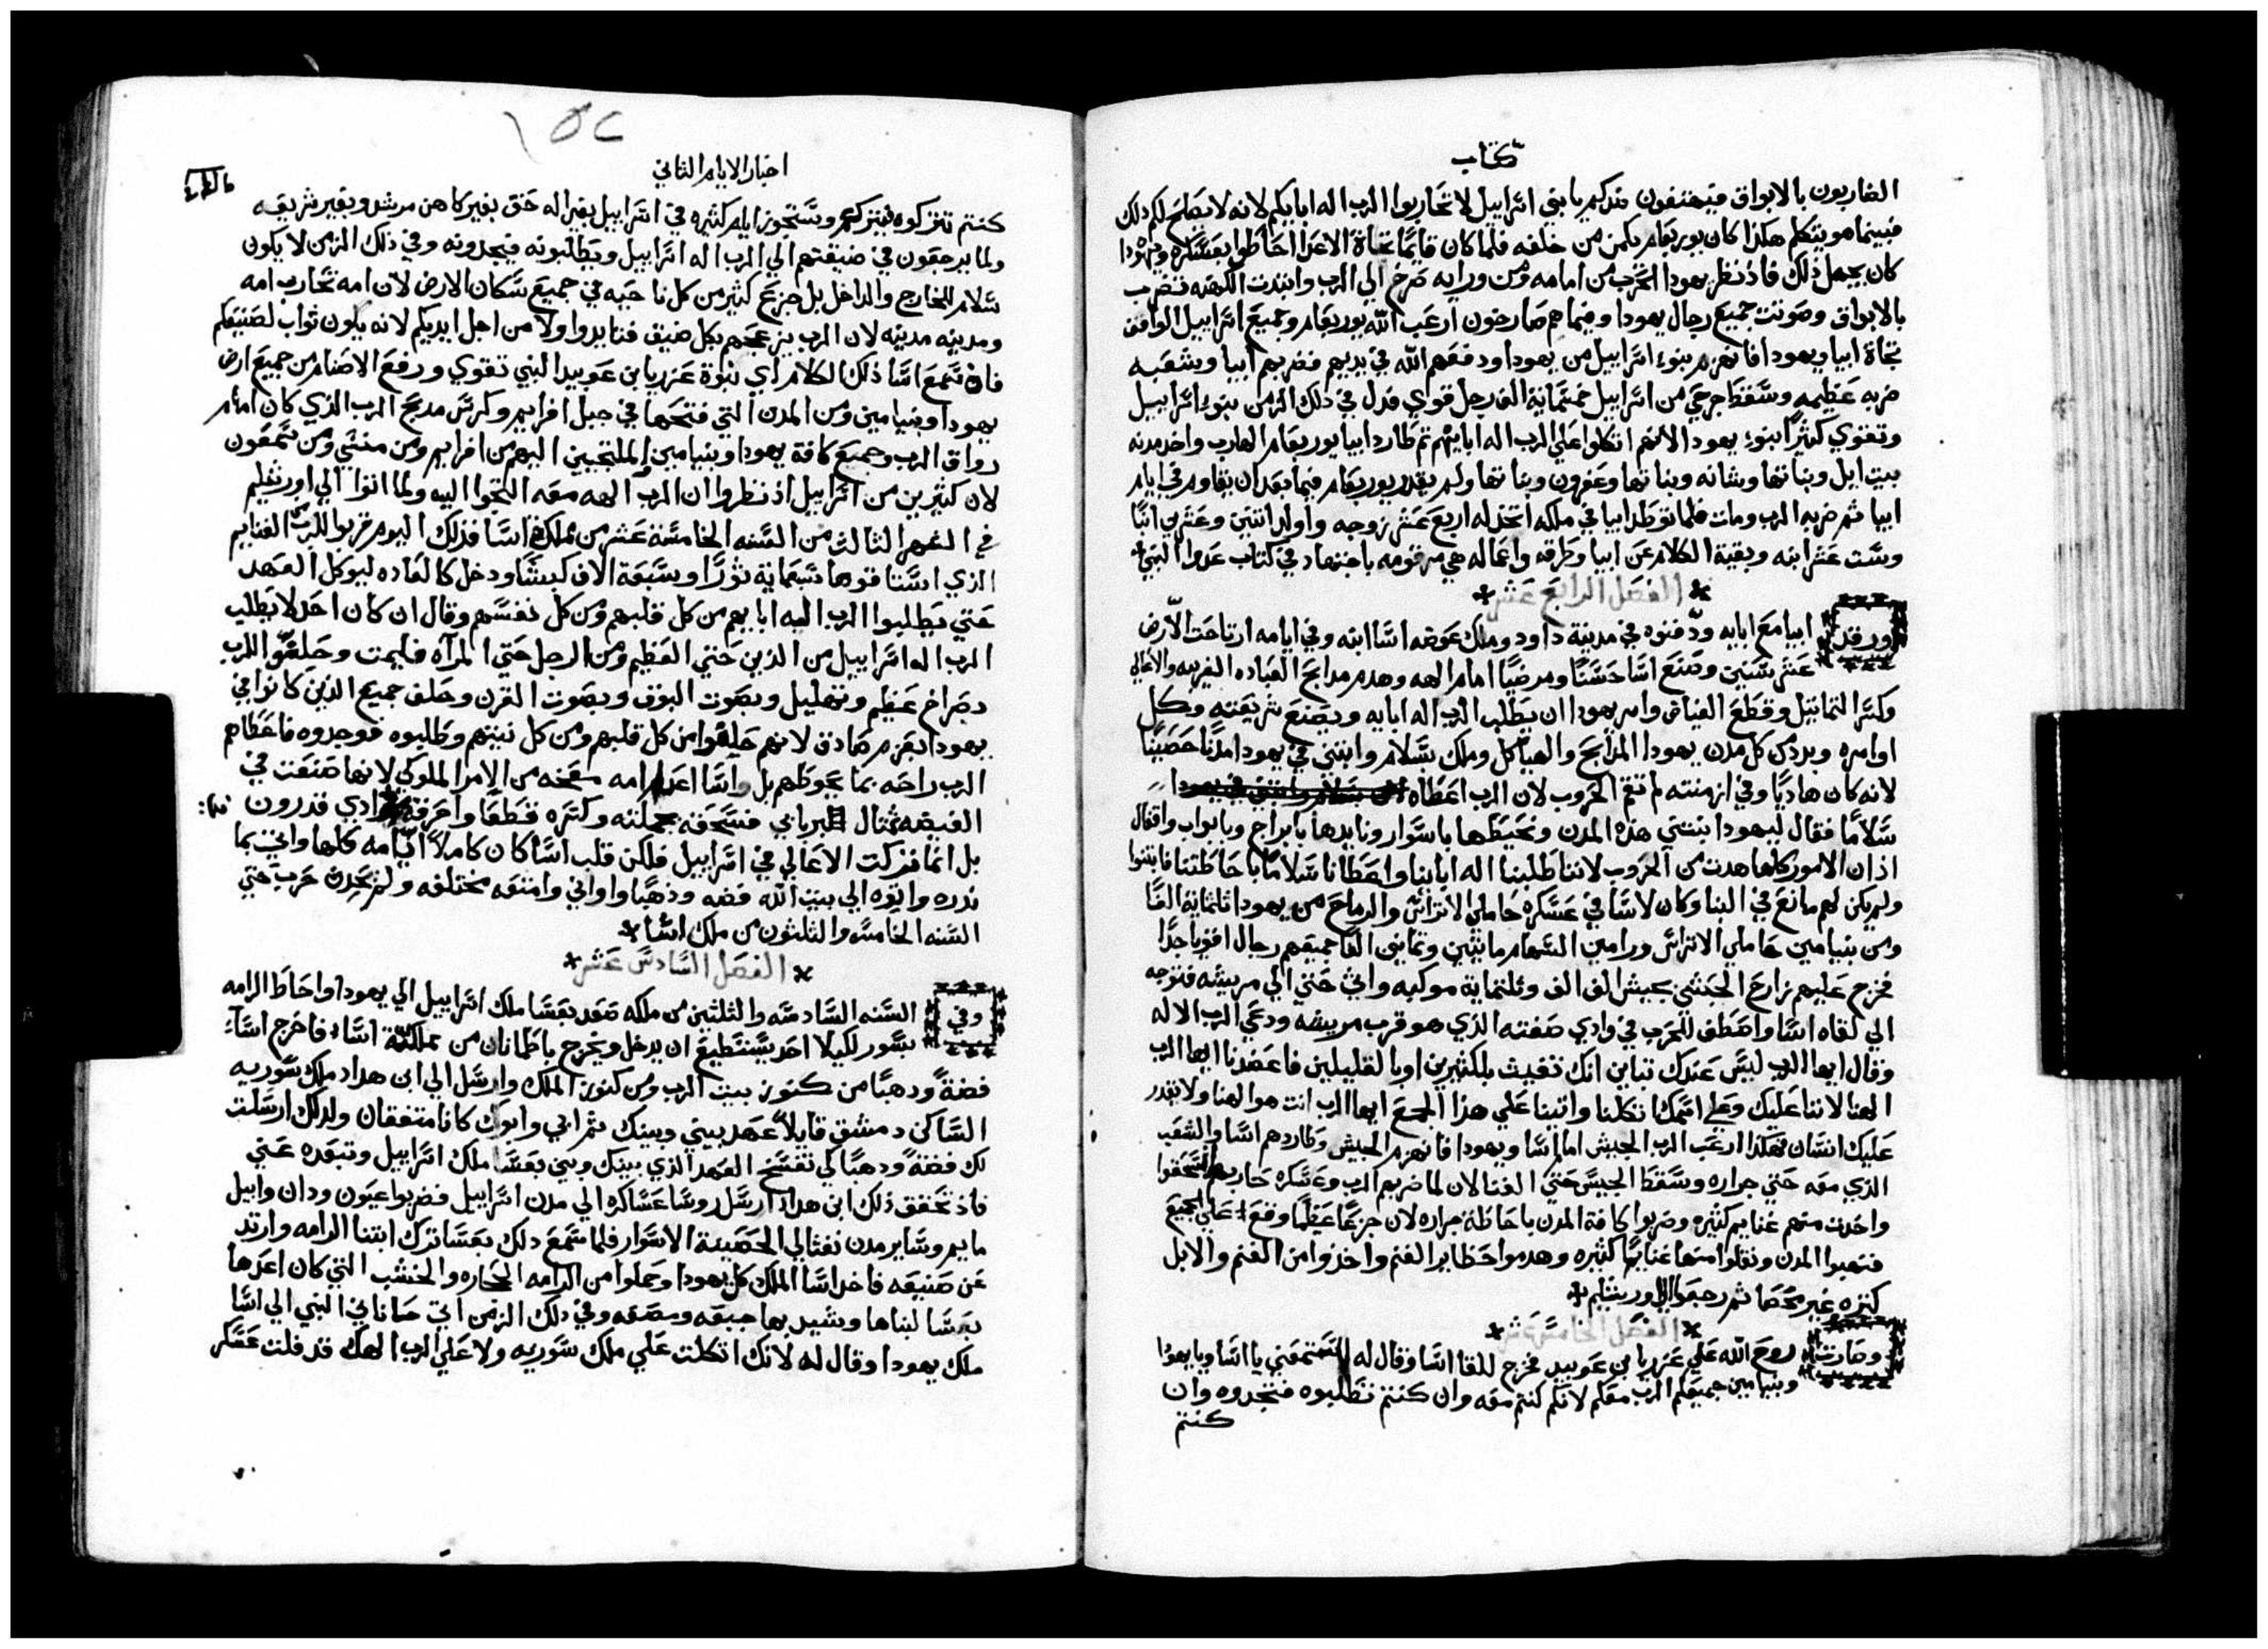 كتاب
الضاربون بالابواق فيهتفون ضدكم يا بني اسراييل لا تحاربوا الرب اله ابايكم لانه لا يصلح لكم ذلك
فبينما هو يتكلم هكذا كان يوربعام يكمن من خلفه فلما كان قايمًا تجاة الاعدا احاط بعسكره ويهودا
كان يجهل ذلك فاذ نظر يهودا الحرب من امامه ومن ورايه صرخ الي الرب وابتدت الكهنه تضرب
بالابواق وصوتت جميع رجال يهودا وفيما هم صارخون ارعب الله يوربعام وجميع اسراييل الواقف
تجاة ابيا ويهودا فانهزم بنوء اسراييل من يهودا ودفعهم الله في يديهم فضربهم ابيا وشعبه
ضربه عظيمه وسقط جرحي من اسراييل خمسماية الف رجل قواي فذل في ذلك الزمن بنوء اسراييل
وتقوي كثيرًا بنوء يهودا لانهم اتكلوا علي الرب اله ابايهم ثم طارد ابيا يوربعام الهارب واخذ مدنه
بيت ايل وبناتها ويشانه وبناتها وعفرون وبناتها ولم يقدر يوربعام فيما بعد ان يقاوم في ايام
ابيا ثم ضربه الرب ومات فلما توطد ابيا في ملكه اتخذ له اربع عشر زوجه واولد اثنين وعشرين ابنًا
وست عشر ابنه وبقية الكلام عن ابيا وطرقه واعماله هي مرقومه باجتهاد في كتاب عدوا النبي
الفصل الرابع عشر
ورقد ابيا مع ابايه ودفنوه في مدينة داود وملك عوضه اسا ابنه وفي ايامه ارتاحت الارض
عشر سنين وصنع اسا حسنًا ومرضيًا امام الهه وهدم مدابح العباده الغريبه والاعالي
وكسر التماثيل وقطع الغياض وامر يهودا ان يطلب الرب اله ابايه ويصنع شريعته وكل
اوامره وبدد من كل مدن يهودا المدابح والهياكل وملك بسلام وابتني في يهودا مدنًا حصينًا
لانه كان هاديًا وفي ازمنته لم تقم الحروب لان الرب اعطاه
سلامًا فقال ليهودا نبتني هذه المدن ونحيطها باسوار ونايدها بابراج وبابواب واقفال
اذ ان الامور كلها هدت من الحروب لاننا طلبنا اله ابانا واعطانا سلامًا باحاطتنا فابتنوا
ولم يكن لهم مانع في البنا وكان لاسا في عسكره حاملي الاتراس والرماح من يهودا ثلثماية الفًا
ومن بنيامين حاملي الاتراس ورامين السهام مايتين وثمانين الفًا جميعهم رجال اقويا جدًا
فخرج عليهم زارح الحبشي بجيش الف الف وثلثماية موكبه واتي حتي الي مريشه فتوجه
الي لقاه اسا واصطف للحرب في وادي صفته الذي هو قرب مريشه ودعي الرب الاله
وقال ايها الرب ليس عندك تباين انك تغيث بالكثيرين او بالقليلين فاعضدنا ايها الرب
الهنا لاننا عليك وعلي اسمك اتكلنا واتينا علي هذا الجمع ايها الرب انت هو الهنا ولا يقدر
عليك انسان فهكذا ارعب الرب الحبش امام اسا ويهودا فانهزم الحبيش وطاردهم اسا والشعب
الذي معه حتي جراره وسقط الحبيش حتي الفنا لان لما ضربهم الرب وعسكره حاربهم انسحقوا
واخذت منهم غنايم كثيره وضربوا كافة المدن باحاطة جراره لان جزعًا عظيمًا وقع علي الجميع
فنهبوا المدن ونقلوا منها غنايمًا كثيره وهدموا حظاير الغنم واخذوا من الغنم والابل
كثره غير محصا ثم رجعوا الي اورشليم
الفصل الخامس عشر
وصارت روح الله علي عزريا بن عوبيد فخرج للقا اسا وقال له استمعني يا اسا ويا يهودا
وبنيامين جميعكم الرب معكم لانكم كنتم معه وان كنتم تطلبوه فتجدوه وان
كنتم
١٥٢
اخبار الايام الثاني
كنتم تتركوه فيترككم وستجوز ايام كثيره في اسراييل بغير اله حق بغير كاهن مرشد وبغير شريعه
ولما يرجعون في ضيقتهم الي الرب اله اسراييل ويطلبونه فيجدونه وفي ذلك الزمن لا يكون
سلام للخارج والداخل بل جزع كثير من كل ناحيه في جميع سكان الارض لان امه تحارب امه
ومدينه مدينه لان الرب يزعجهم بكل ضيق فتايدوا ولا من اجل ايديكم لانه يكون ثواب لصنيعكم
فاذ سمع اسا ذلك الكلام اي نبوة عزريا بن عوبيد النبي تقوي ورفع الاصنام من جميع ارض
يهودا وبنيامين ومن المدن التي فتحها في جبل افرايم وكرس مدبح الرب الذي كان امام
رواق الرب وجميع كافة يهودا وبنيامين الملتجيين اليهم من افرايم ومن منسي ومن سمعون
لان كثيرين من اسراييل اذ نظروا ان الرب الهه معه التجوا اليه ولما اتوا الي اورشليم
في الشهر الثالث من السنه الخامسة عشر من ملك اسا فذلك اليوم قربوا للرب الغنايم
الذي استاقوها سبعماية ثورًا وسبعة الاف كبشًا ودخل كالعاده ليوكل العهد
حتي يطلبوا الرب اله ابايهم من كل قلبهم ومن كل نفسهم وقال ان كان احد لا يطلب
الرب اله اسراييل من الذين حتي العظيم ومن الرجل حتي المرآه فليمت وحلفوا للرب
بصراخ عظيم وتهليل وبصوت البوق وبصوت القرن وحلف جميع الذين كانوا في
يهودا بعزم صادق لانهم حلفوا من كل قلبهم ومن كل نيتهم وطلبوه فوجدوه فاعطاهم
الرب راحه بما يحوطهم بل واسا اعدا امه معخه من الامر الملوكي لانها صنعت في
الغيضه تمثال بريابي فسحقه بجملته وكسره قطعًا واحرقه في وادي قدرون
بل انما تركت الاعالي في اسراييل فلكن قلب اسا كان كاملاً ايامه كلها واتي بما
نذره وابوه الي بيت الله فضه وذهبًا واواني وامتعه مختلفه ولم يحدث حرب حتي
السنه الخامسه والثلثون من ملك اسا
الفصل السادس عشر
وفي السنه السادسه والثلثين من ملكه صعد بعسا ملك اسراييل الي يهودا واحاط الرامه
بسور لكيلا احد يستطيع ان يدخل ويخرج باطمانان من مملكة اسا فاخرج اسا
فضةً ودهبًا من كنوز بيت الرب ومن كنوز الملك وارسل الي ابن هداد ملك سوريه
الساكن دمشق قايلاً عهد بيني وبينك ثم ابي وابوك كانا متفقان ولذلك ارسلت
لك فضةً ودهبًا لكي تفسخ العهد الذي بينك وبين بعسا ملك اسراييل وتبعده عني
فاذ تحقق ذلك ابن هداد ارسل روسا عساكره الي مدن اسراييل فضربوا عيون ودان وابيل
مايم وساير مدن نفتالي الحصينة الاسوار فلما سمع دلك بعسا ترك ابتنا الرامه وارتد
عن صنيعه فاخد اسا الملك كل يهودا وحملوا من الرامه الحجاره والخشب التي كان اعدها
بعسا لبناها وشيد بها جبعه ومصفه وفي دلك الزمن اتي حاناني النبي الي اسا
ملك يهودا وقال له لانك اتكلت علي ملك سوريه ولا علي الرب الهك قد فلت عسكر